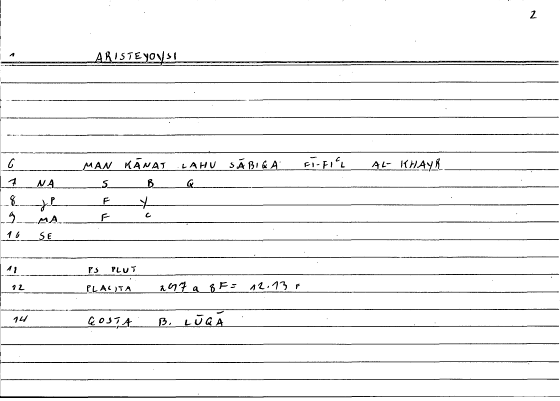 2
1 ARISTEYOVSI
6 MAN KĀNAT LAHU SĀBIQA FĪ-FIʿL AL-KHAYR
7 NA S B Q
8 JP F Y
9 MA F C
10 SE
11 PS PLUT
12 PLACITA 297 a 8F = 12.13 r
14 QOSṬA B. LŪQĀ